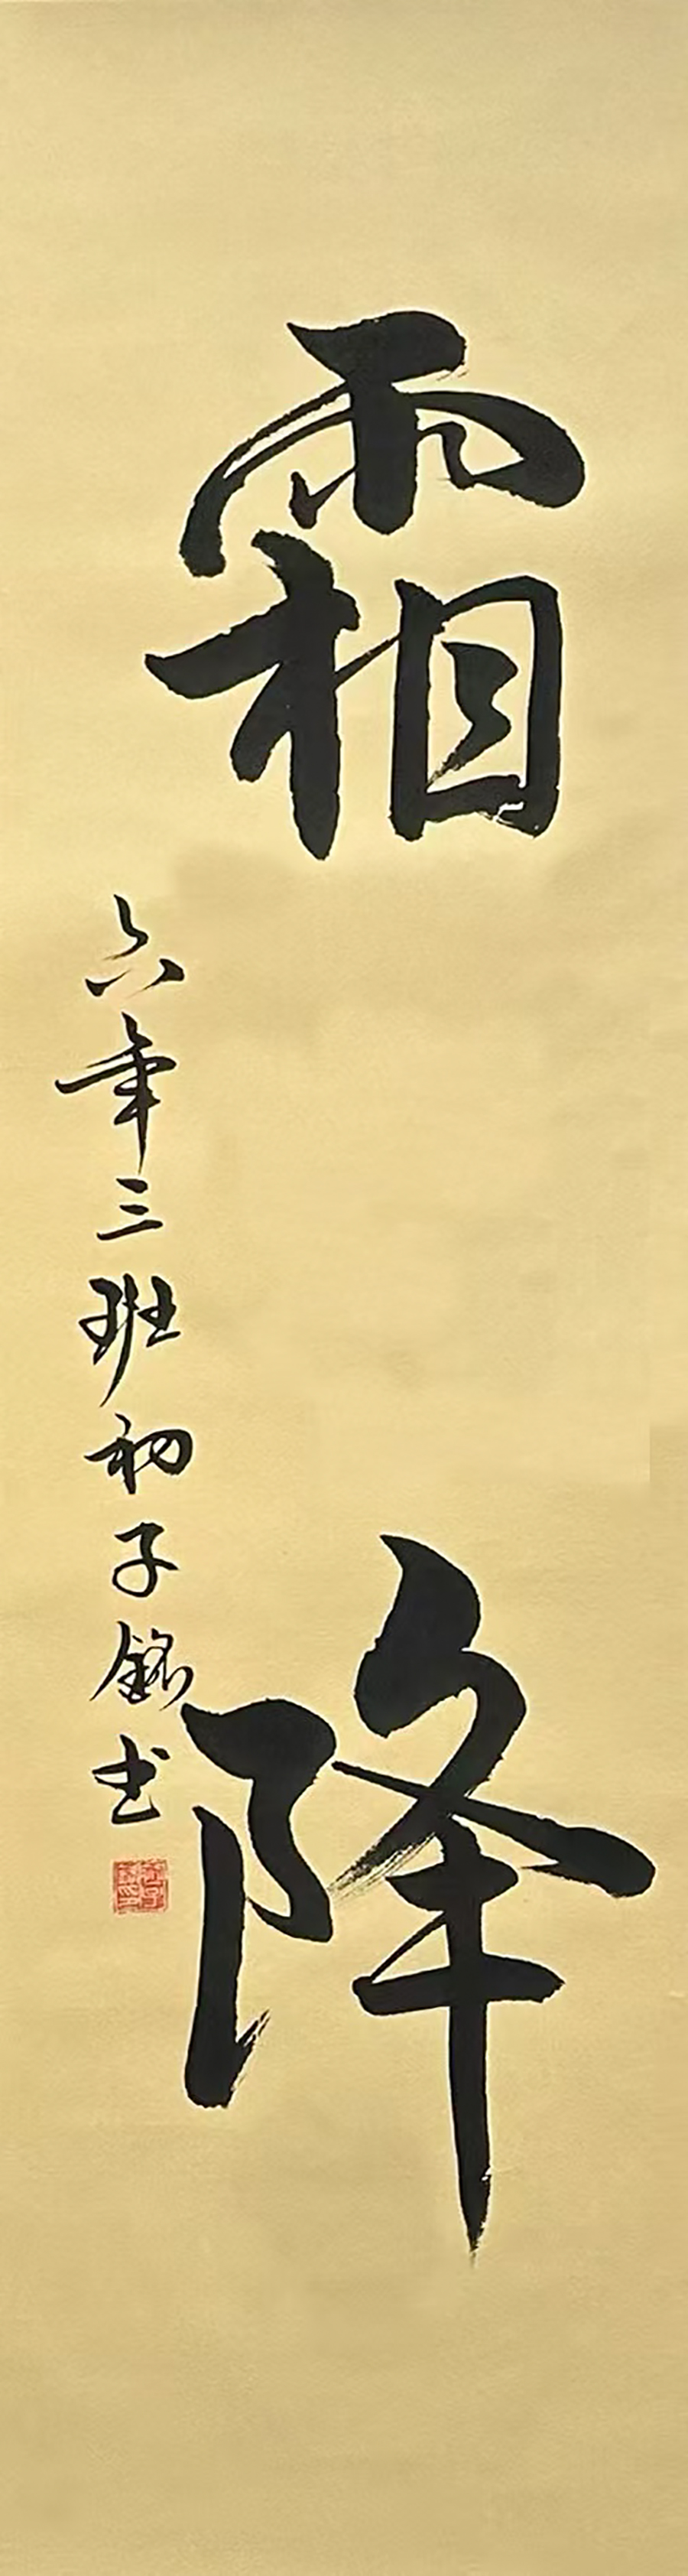 霜降
六年三班初子銘书